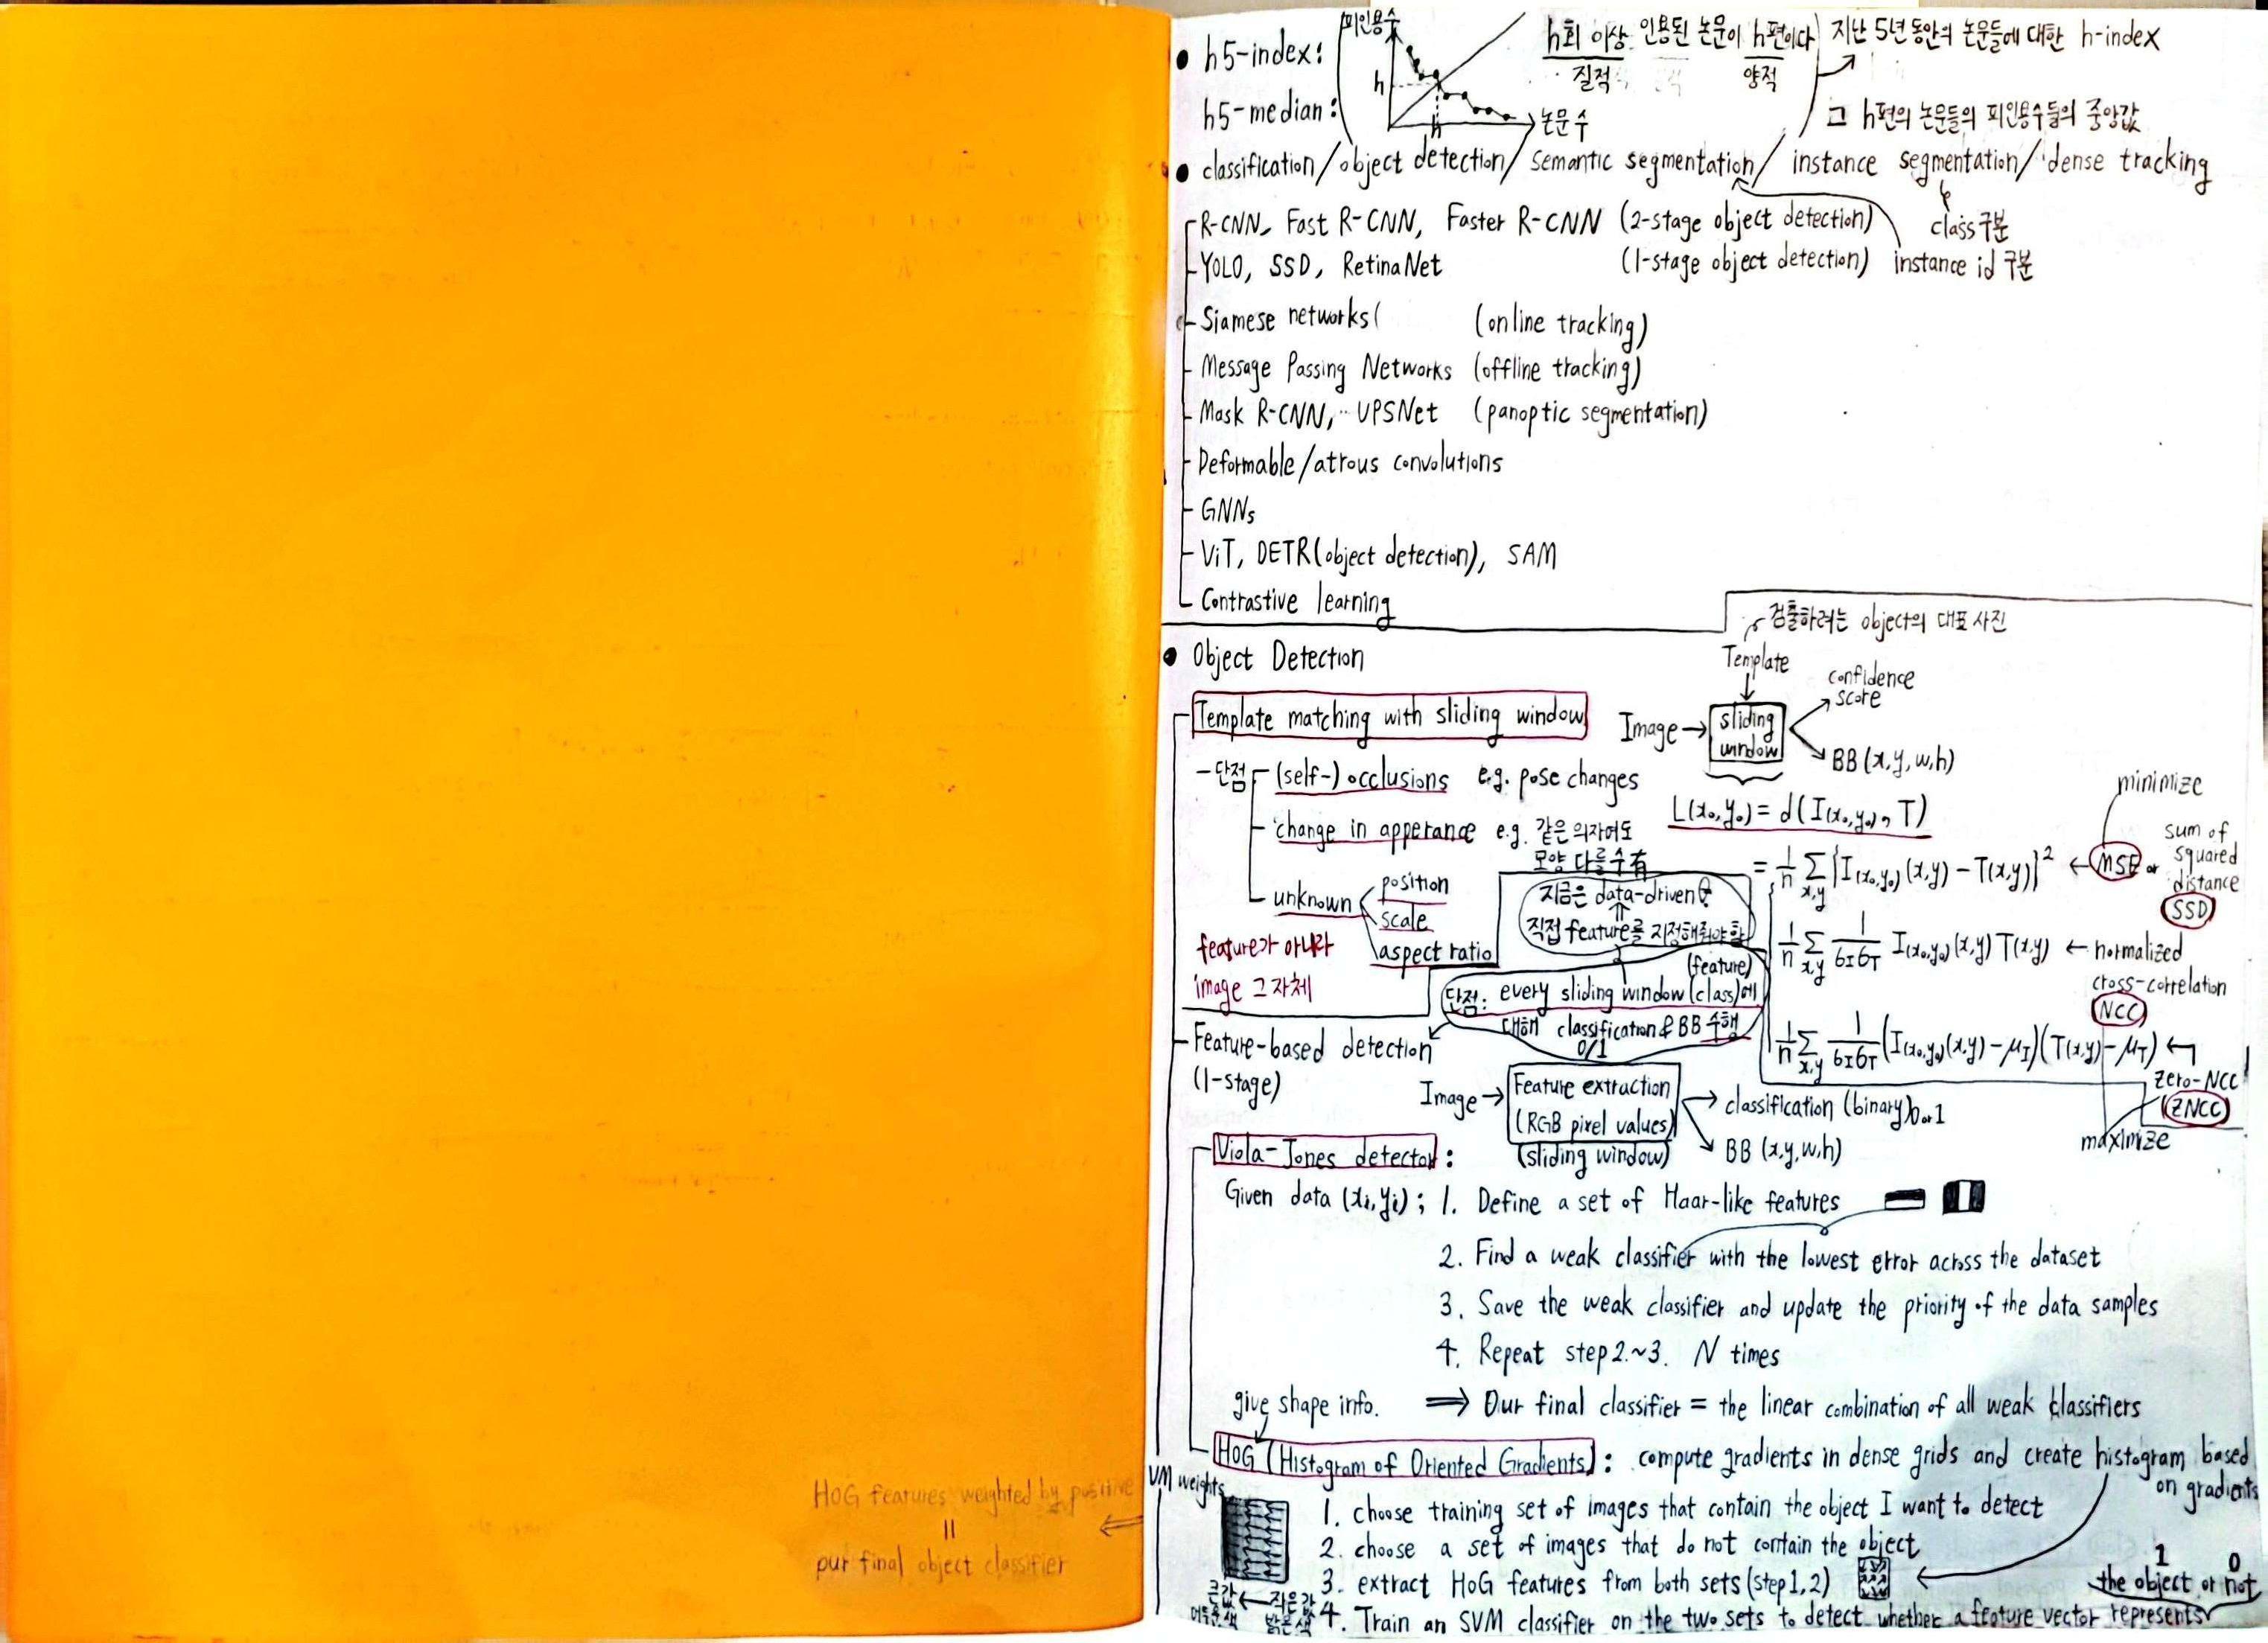 • h5-index: 피인용수 h 논문 수 h h회 이상 인용된 논문이 h편이다 지난 5년 동안의 논문들에 대한 h-index
질적 양적
h5-median: 그 h편의 논문들의 피인용수들의 중앙값
• classification/object detection/semantic segmentation/ instance segmentation/dense tracking
R-CNN, Fast R-CNN, Faster R-CNN (2-stage object detection) class 구분
YOLO, SSD, RetinaNet (1-stage object detection) instance id 구분
Siamese networks( (online tracking)
Message Passing Networks (offline tracking)
Mask R-CNN, UPSNet (panoptic segmentation)
Deformable/atrous convolutions
GNNs
ViT, DETR(object detection), SAM
Contrastive learning
검출하려는 object의 대표 사진
• Object Detection
Template
Template matching with sliding window
Image → sliding window
confidence score
BB (x,y,w,h)
- 단점
(self-) occlusions e.g. pose changes
change in apperance e.g. 같은 의자여도
모양 다를 수 有
unknown
position
scale
aspect ratio
feature가 아니라
image 그 자체
L(x₀,y₀) = d(I(x₀,y₀), T)
minimize
= 1/n Σx,y {I(x₀,y₀)(x,y) - T(x,y)}² ← MSE or
sum of squared distance
SSD
1/n Σx,y 1/σIσT I(x₀,y₀)(x,y) T(x,y) ← normalized
cross-correlation
NCC
1/n Σx,y 1/σIσT (I(x₀,y₀)(x,y) - μI)(T(x,y) - μT) ←
zero-NCC
(ZNCC)
maximize
지금은 data-driven
직접 feature를 지정해줘야 함
(feature)
단점: every sliding window (class)에
대해 classification & BB 수행
0/1
Feature-based detection
(1-stage)
Image → Feature extraction
(RGB pixel values)
(sliding window)
classification (binary) 0 or 1
BB (x,y,w,h)
Viola-Jones detector:
Given data (xi, yi) ; 1. Define a set of Haar-like features
2. Find a weak classifier with the lowest error across the dataset
3. Save the weak classifier and update the priority of the data samples
4. Repeat step 2.~3. N times
give shape info. ⟹ Our final classifier = the linear combination of all weak classifiers
HoG (Histogram of Oriented Gradients) : compute gradients in dense grids and create histogram based
on gradients
VM weights
1. choose training set of images that contain the object I want to detect
2. choose a set of images that do not contain the object
3. extract HoG features from both sets (step 1, 2)
4. Train an SVM classifier on the two sets to detect whether a feature vector represents
1 0
the object or not
큰값 ← 작은값
어두운색 밝은색
HoG features weighted by positive
||
our final object classifier
⇐